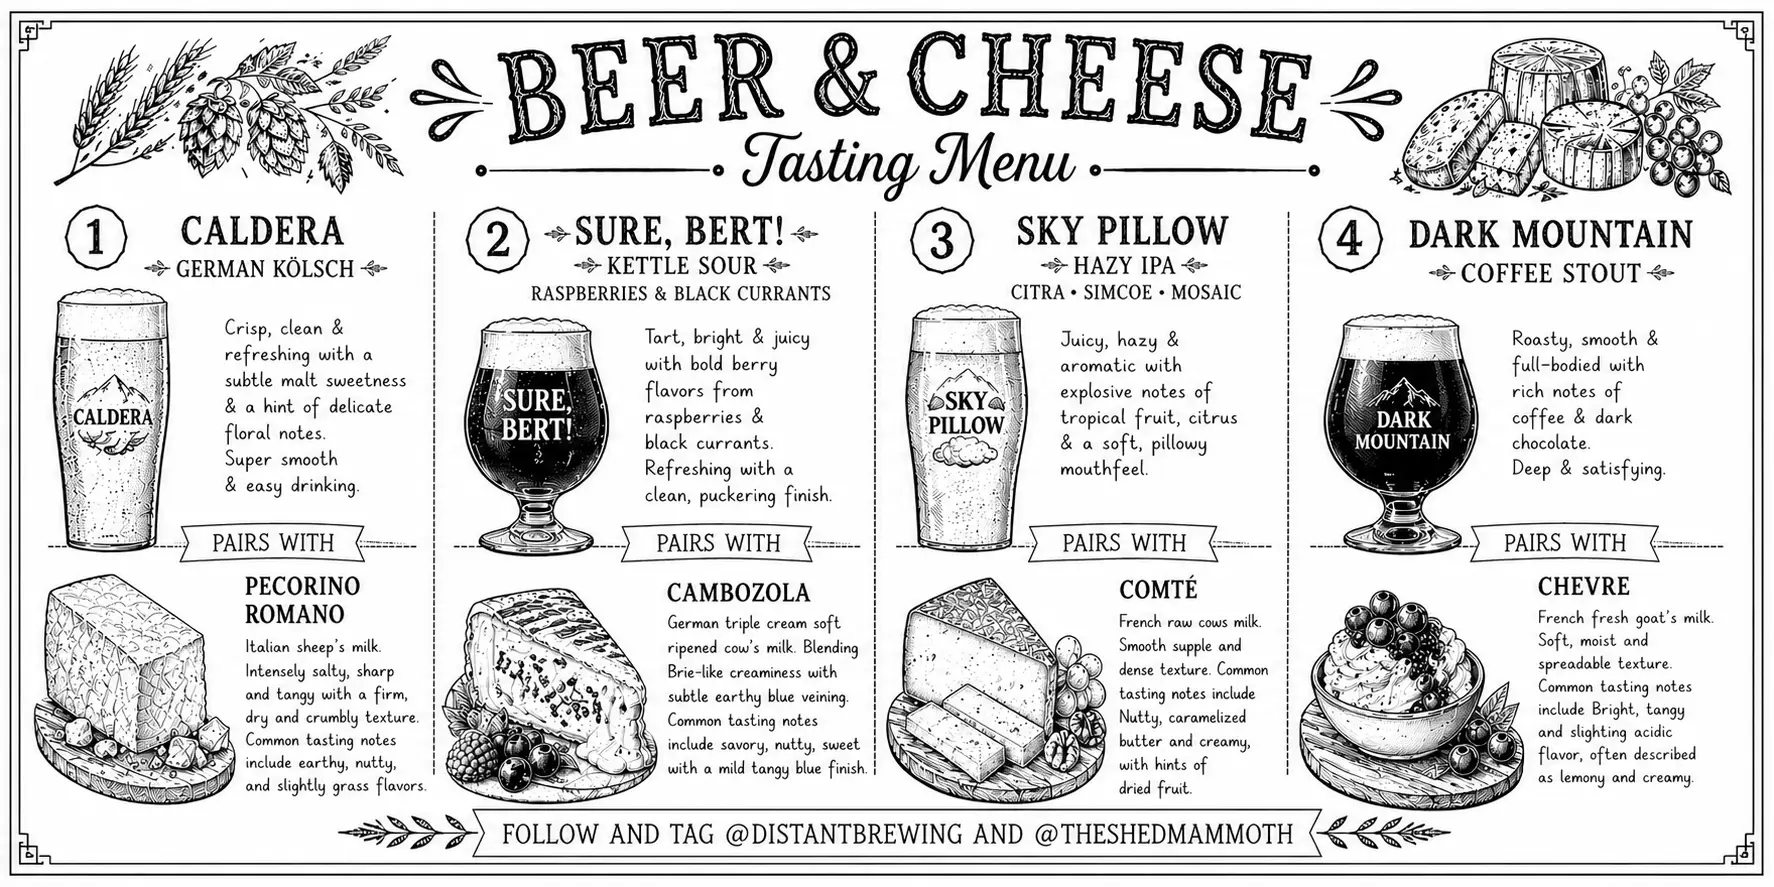 BEER & CHEESE
Tasting Menu
1
CALDERA
GERMAN KÖLSCH
CALDERA
Crisp, clean &
refreshing with a
subtle malt sweetness
& a hint of delicate
floral notes.
Super smooth
& easy drinking.
PAIRS WITH
PECORINO
ROMANO
Italian sheep's milk.
Intensely salty, sharp
and tangy with a firm,
dry and crumbly texture.
Common tasting notes
include earthy, nutty,
and slightly grass flavors.
2
SURE, BERT!
KETTLE SOUR
RASPBERRIES & BLACK CURRANTS
SURE,
BERT!
Tart, bright & juicy
with bold berry
flavors from
raspberries &
black currants.
Refreshing with a
clean, puckering finish.
PAIRS WITH
CAMBOZOLA
German triple cream soft
ripened cow's milk. Blending
Brie-like creaminess with
subtle earthy blue veining.
Common tasting notes
include savory, nutty, sweet
with a mild tangy blue finish.
3
SKY PILLOW
HAZY IPA
CITRA • SIMCOE • MOSAIC
SKY
PILLOW
Juicy, hazy &
aromatic with
explosive notes of
tropical fruit, citrus
& a soft, pillowy
mouthfeel.
PAIRS WITH
COMTÉ
French raw cows milk.
Smooth supple and
dense texture. Common
tasting notes include
Nutty, caramelized
butter and creamy,
with hints of
dried fruit.
4
DARK MOUNTAIN
COFFEE STOUT
DARK
MOUNTAIN
Roasty, smooth &
full-bodied with
rich notes of
coffee & dark
chocolate.
Deep & satisfying.
PAIRS WITH
CHEVRE
French fresh goat's milk.
Soft, moist and
spreadable texture.
Common tasting notes
include Bright, tangy
and slighting acidic
flavor, often described
as lemony and creamy.
FOLLOW AND TAG @DISTANTBREWING AND @THESHEDMAMMOTH